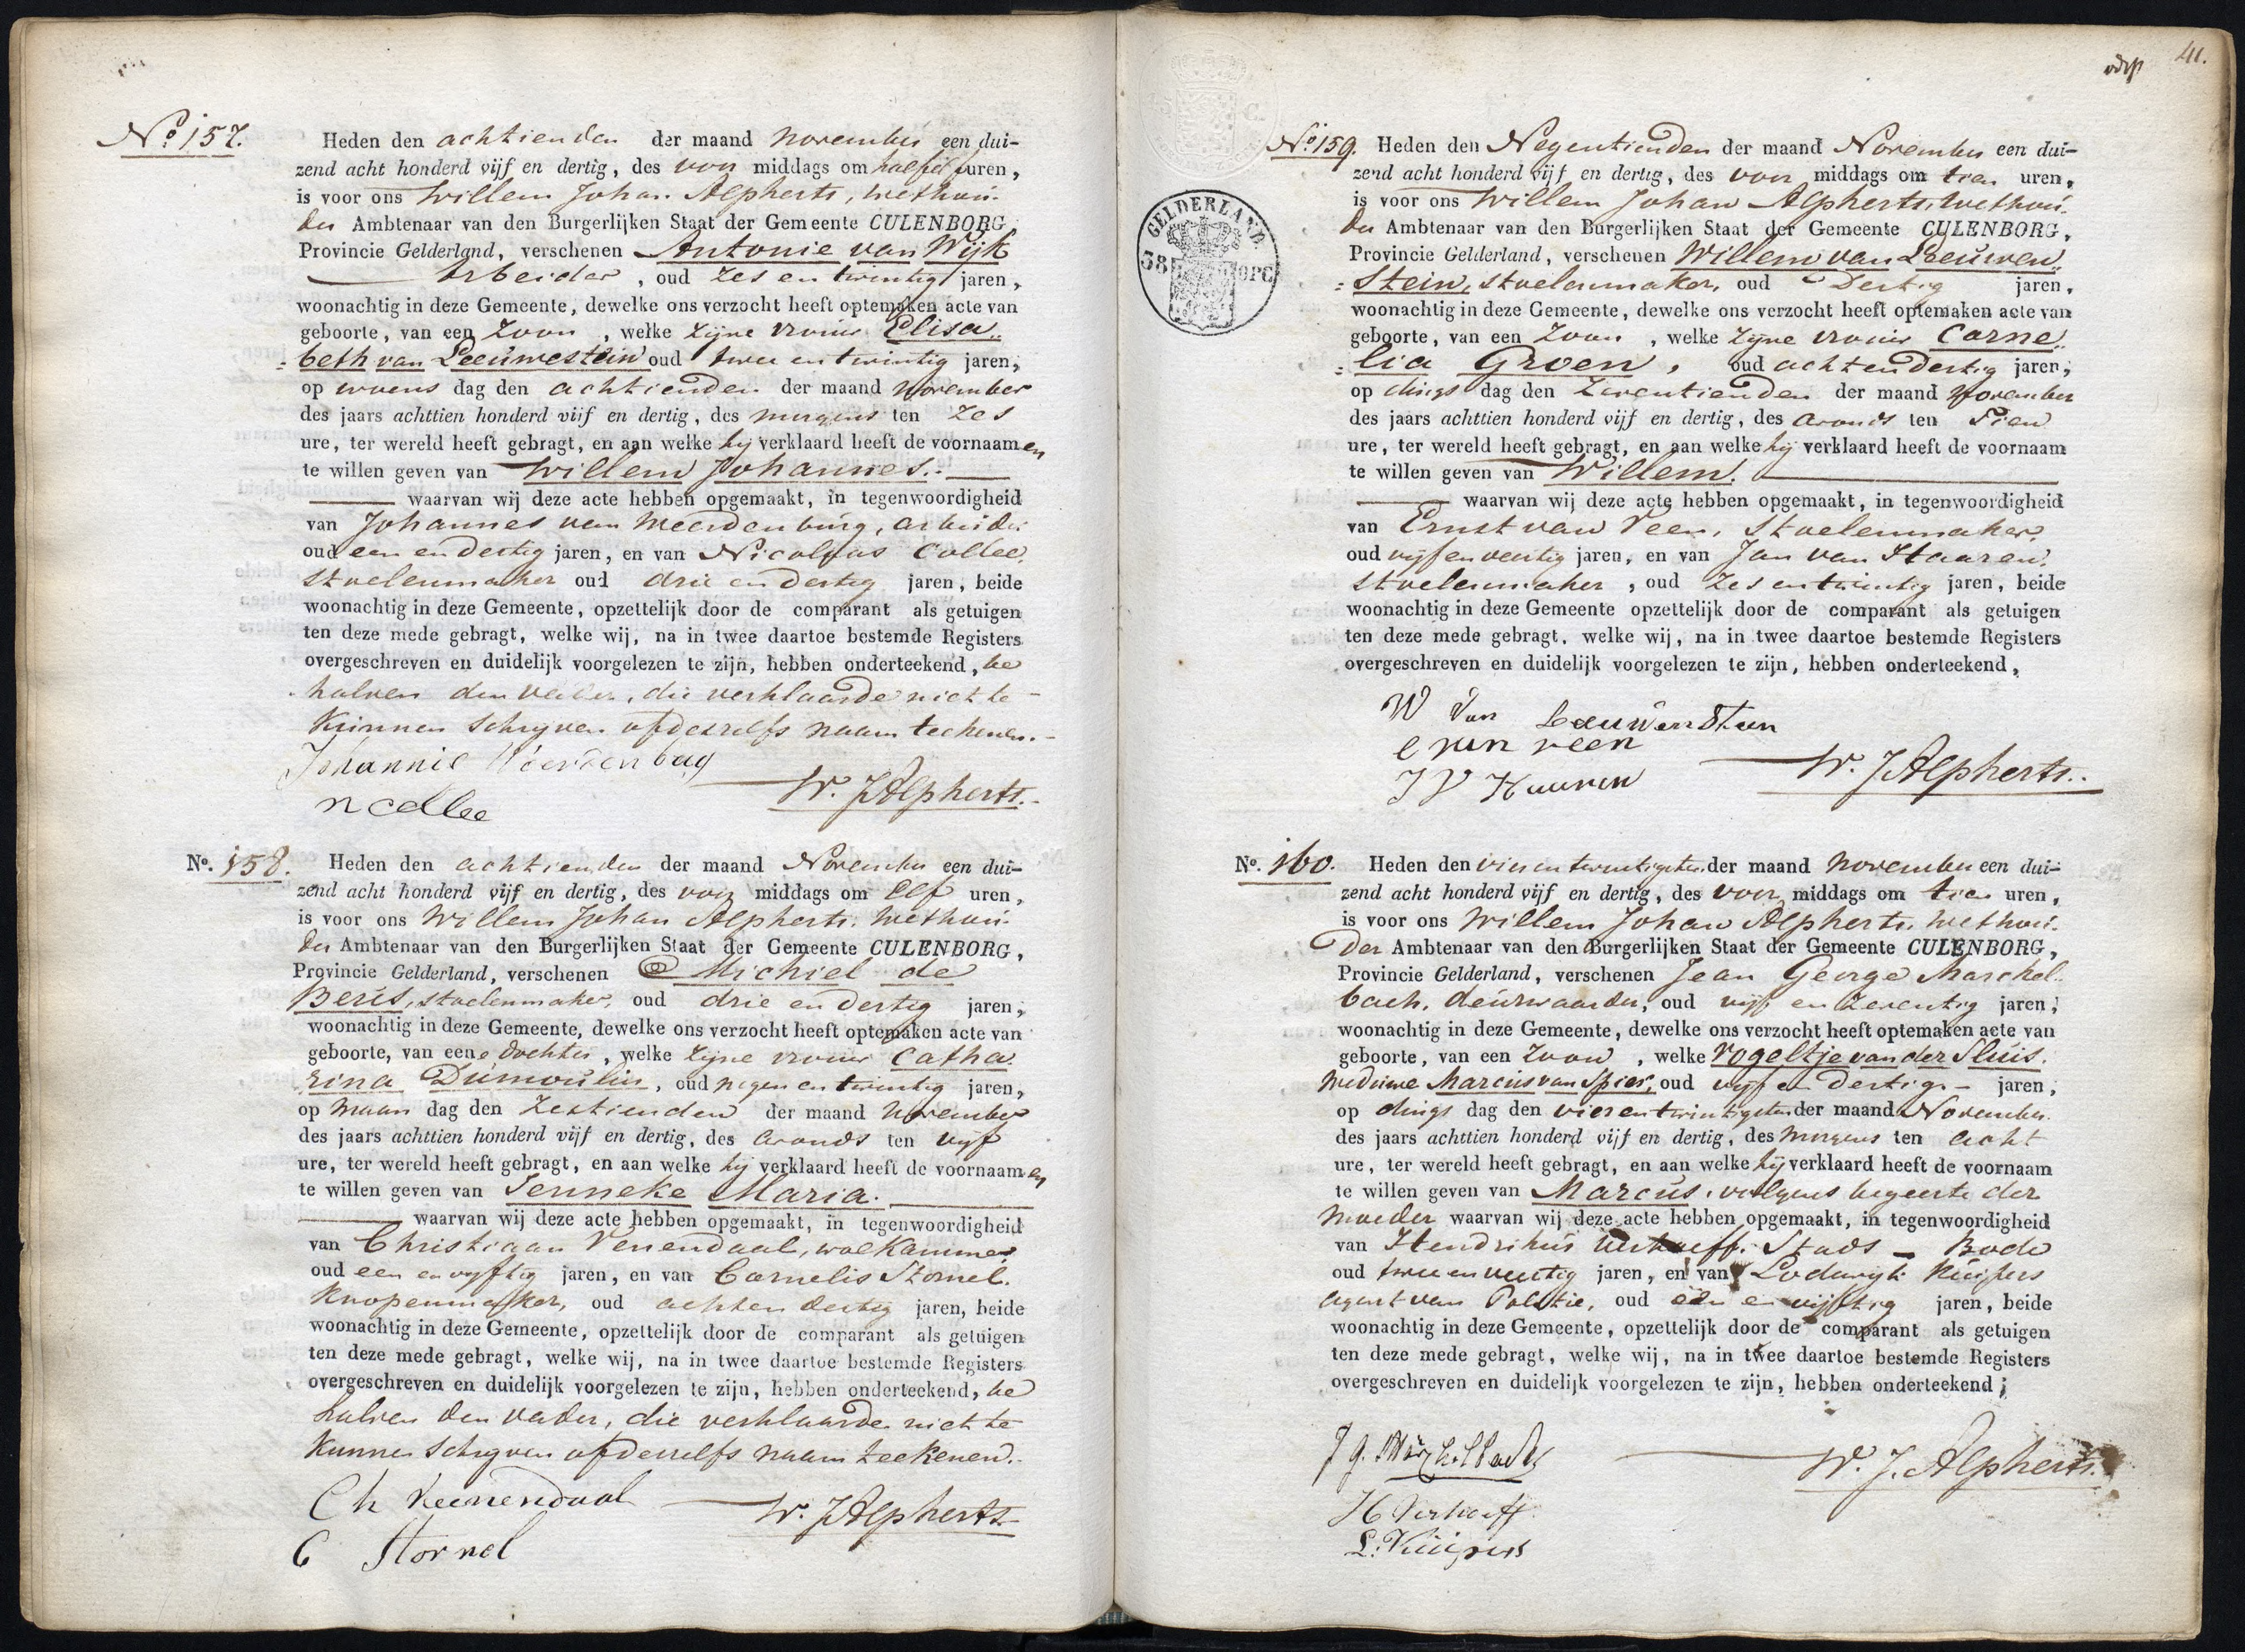 No 157.
Heden den achtienden der maand november een dui-
zend acht honderd vijf en dertig, des voor middags om half elf uren,
is voor ons Willem Johan Alpherts, wethou-
der Ambtenaar van den Burgerlijken Staat der Gemeente CULENBORG
Provincie Gelderland, verschenen Antonie van Wijk
arbeider, oud zes en twintig jaren,
woonachtig in deze Gemeente, dewelke ons verzocht heeft optemaken acte van
geboorte, van een zoon, welke zijne vrouw Elisa„
beth van Leeuwestein oud twee en twintig jaren,
op woens dag den achtienden der maand november
des jaars achttien honderd vijf en dertig, des morgens ten zes
ure, ter wereld heeft gebragt, en aan welke hij verklaard heeft de voornaamen
te willen geven van Willem Johannes.
waarvan wij deze acte hebben opgemaakt, in tegenwoordigheid
van Johannes van Weerdenburg, arbeider
oud een en dertig jaren, en van Nicolaas Collee,
stoelenmaker oud drie en dertig jaren, beide
woonachtig in deze Gemeente, opzettelijk door de comparant als getuigen
ten deze mede gebragt, welke wij, na in twee daartoe bestemde Registers
overgeschreven en duidelijk voorgelezen te zijn, hebben onderteekend, be
halven den vader, die verklaarde niet te
kunnen schrijven ofdeszelfs naam teekenen.
Johannis Weerdenburg
W. J Alpherts.
n collee
No. 158.
Heden den achtienden der maand November een dui-
zend acht honderd vijf en dertig, des voor middags om elf uren,
is voor ons Willem Johan Alpherts, wethou-
der Ambtenaar van den Burgerlijken Staat der Gemeente CULENBORG,
Provincie Gelderland, verschenen Michiel de
Beris, stoelenmaker, oud drie en dertig jaren,
woonachtig in deze Gemeente, dewelke ons verzocht heeft optemaken acte van
geboorte, van eene dochter, welke zijne vrouw Catha
rina Dumoulin, oud negen en twintig jaren,
op maan dag den zestienden der maand november
des jaars achttien honderd vijf en dertig, des avonds ten vijf
ure, ter wereld heeft gebragt, en aan welke hij verklaard heeft de voornaamen
te willen geven van Jenneke Maria.
waarvan wij deze acte hebben opgemaakt, in tegenwoordigheid
van Christiaan Venendaal, wolkammer
oud een en vyftig jaren, en van Cornelis Stornel.
knopenmaker, oud achten dertig jaren, beide
woonachtig in deze Gemeente, opzettelijk door de comparant als getuigen
ten deze mede gebragt, welke wij, na in twee daartoe bestemde Registers
overgeschreven en duidelijk voorgelezen te zijn, hebben onderteekend, be
halven den vader, die verklaarde niet te
kunnen schryven ofdeszelfs naam teekenen.
Ch Veenendaal
W. J Alpherts
C Stornel
41.
GELDERLAND.
38 OPC
No 159.
Heden den Negentienden der maand November een dui-
zend acht honderd vijf en dertig, des voor middags om tien uren,
is voor ons Willem Johan Alpherts, wethou-
der Ambtenaar van den Burgerlijken Staat der Gemeente CULENBORG,
Provincie Gelderland, verschenen Willem van Leeuwen„
stein, stoelenmaker, oud Dertig jaren,
woonachtig in deze Gemeente, dewelke ons verzocht heeft optemaken acte van
geboorte, van een zoon, welke zijne vrouw Corne„
lia Groen, oud achtendertig jaren,
op dings dag den zeventienden der maand november
des jaars achttien honderd vijf en dertig, des avonds ten Tien
ure, ter wereld heeft gebragt, en aan welke hij verklaard heeft de voornaam
te willen geven van Willem.
waarvan wij deze acte hebben opgemaakt, in tegenwoordigheid
van Ernst van Veen, stoelenmaker
oud vijfenveertig jaren, en van Jan van Haaren,
stoelenmaker, oud zes en twintig jaren, beide
woonachtig in deze Gemeente opzettelijk door de comparant als getuigen
ten deze mede gebragt, welke wij, na in twee daartoe bestemde Registers
overgeschreven en duidelijk voorgelezen te zijn, hebben onderteekend,
W Van Leeuwenstein
E van veen
W. J Alpherts.
J V Haaren
No. 160.
Heden den vier en twintigsten der maand november een dui-
zend acht honderd vijf en dertig, des voor middags om tien uren,
is voor ons Willem Johan Alpherts, wethou-
der Ambtenaar van den Burgerlijken Staat der Gemeente CULENBORG,
Provincie Gelderland, verschenen Jean George Marchel
bach, deurwaarder, oud vijf en zeventig jaren,
woonachtig in deze Gemeente, dewelke ons verzocht heeft optemaken acte van
geboorte, van een zoon, welke Vogeltje van der Sluis.
weduwe Marcus van Spier, oud vijf en Dertig jaren,
op dings dag den vier en twintigsten der maand November
des jaars achttien honderd vijf en dertig, des morgens ten acht
ure, ter wereld heeft gebragt, en aan welke hij verklaard heeft de voornaam
te willen geven van Marcus, volgens begeerte der
moeder waarvan wij deze acte hebben opgemaakt, in tegenwoordigheid
van Hendrikus Verhoeff, Stads - Bode
oud twee en veertig jaren, en van Lodewijk Kuijpers
agent van Politie, oud een en vijftig jaren, beide
woonachtig in deze Gemeente, opzettelijk door de comparant als getuigen
ten deze mede gebragt, welke wij, na in twee daartoe bestemde Registers
overgeschreven en duidelijk voorgelezen te zijn, hebben onderteekend;
W. J. Alpherts.
H Verhoeff
L. Kuijpers